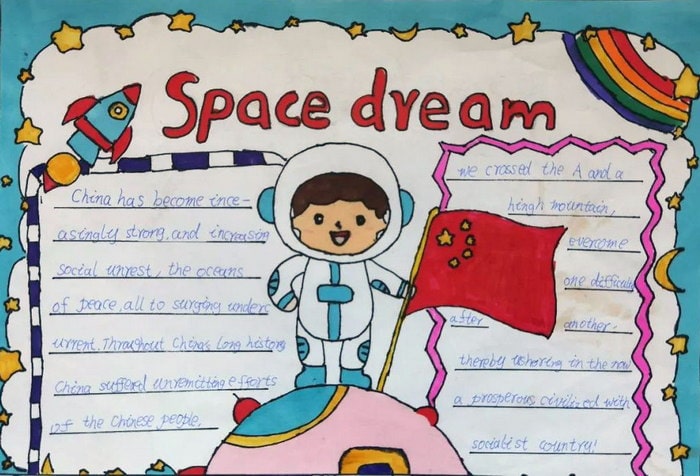 Space dream
China has become ince-
asingly strong, and increasing
social unrest, the oceans
of peace, all to surging underc
urrent. Throughout China's long history
China suffered unremitting efforts
of the Chinese people.
we crossed the A and a
hingh mountain,
evercome
one difficulty
after another.
thereby ushering in the now
a prosperous civilized with
socialist country!